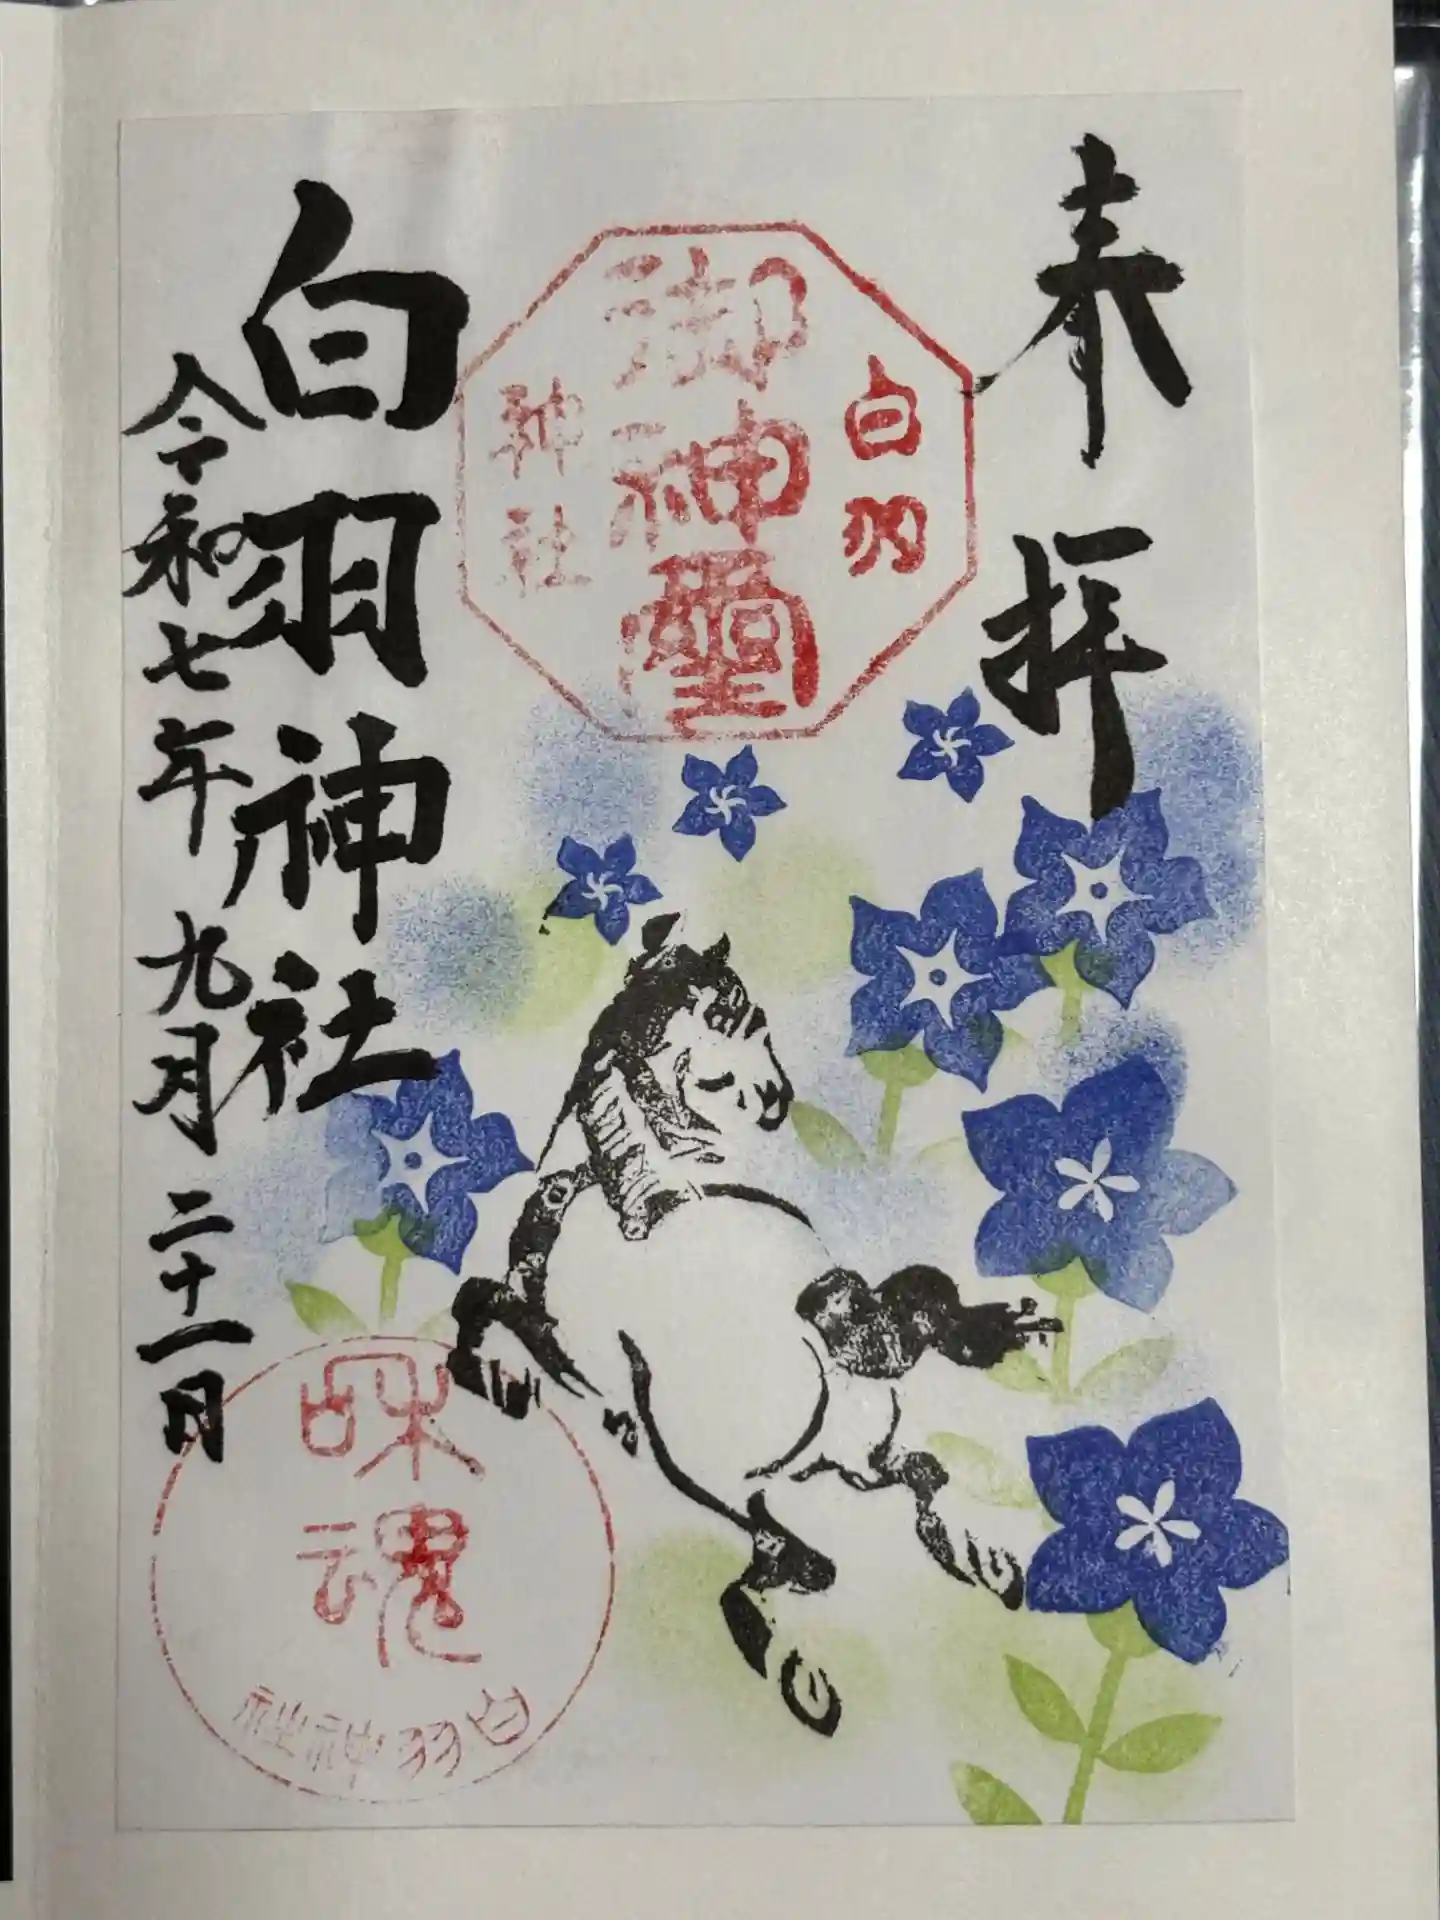 奉拝
白羽
御神璽
神社
白羽神社
令和七年九月二十一日
和魂
白羽神社